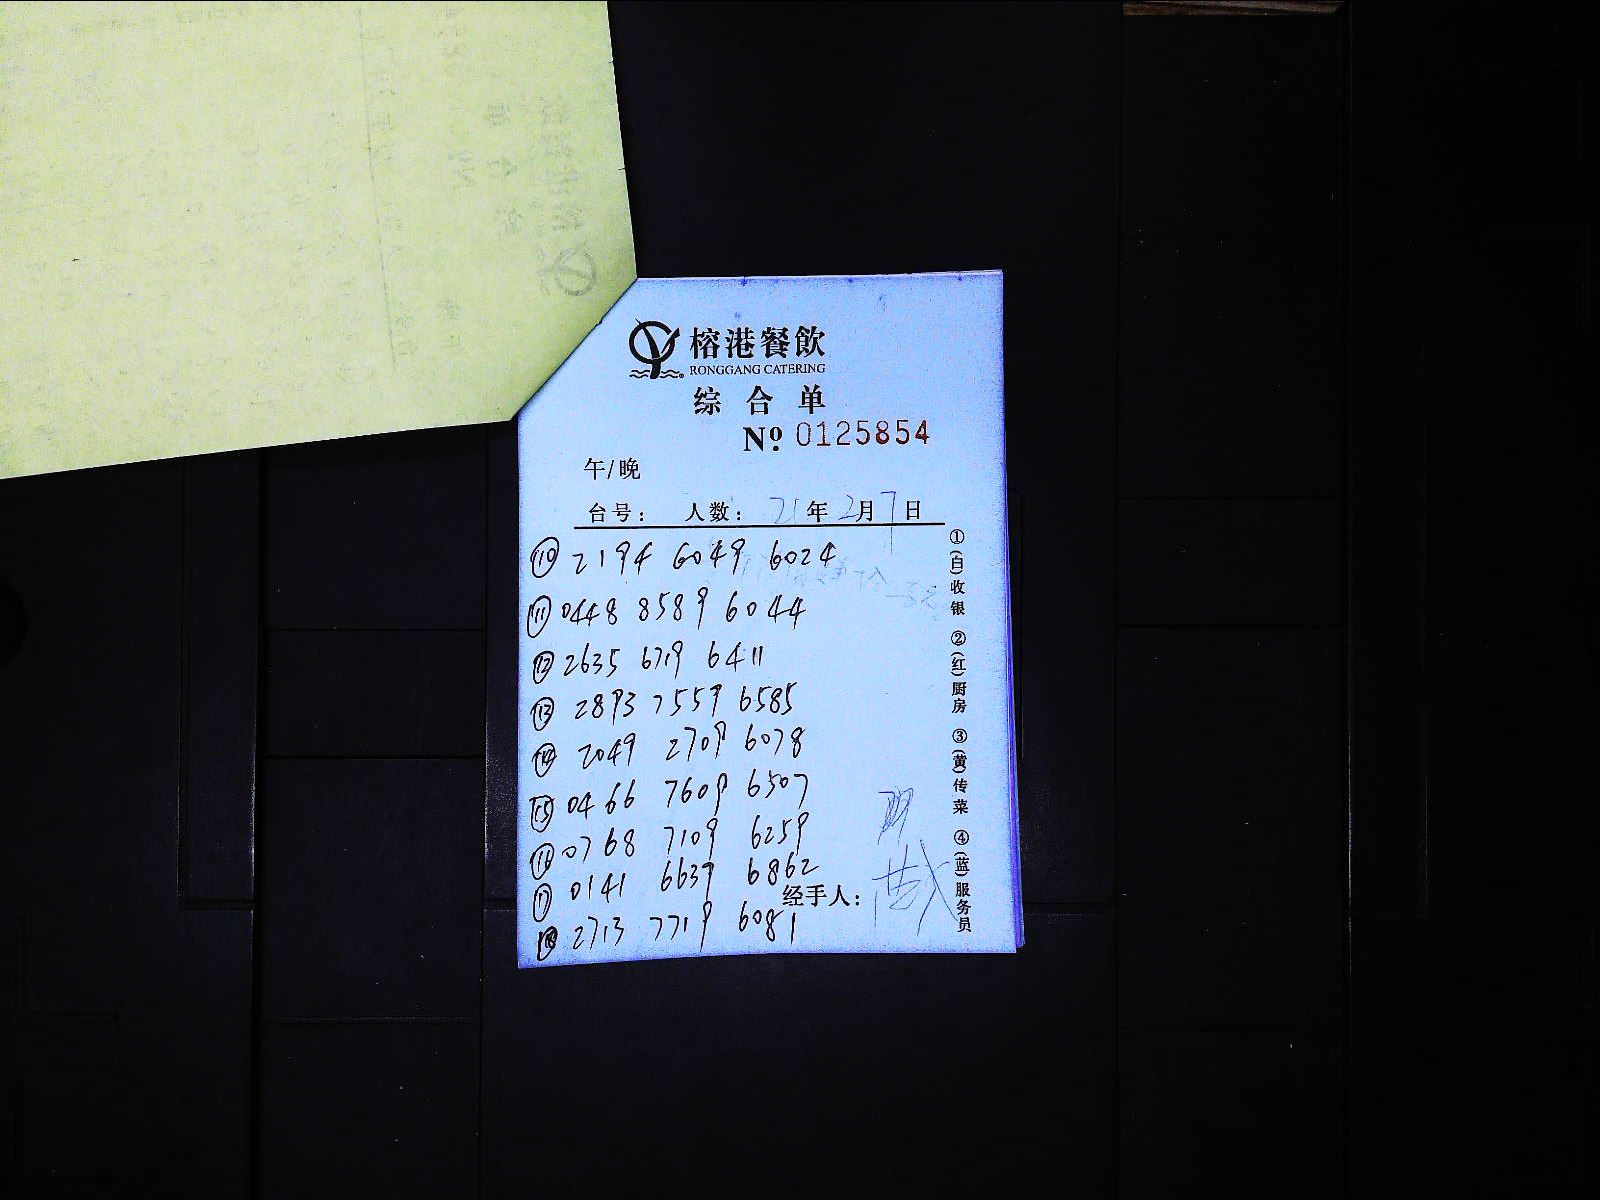 榕港餐飲
RONGGANG CATERING
综合单
Nº 0125854
午/晚
台号： 人数： 21年2月7日
⑩ 2194 6049 6024
⑪ 0448 8589 6044
⑫ 2635 6719 6411
⑬ 2893 7559 6585
⑭ 2049 2709 6078
⑮ 0466 7609 6507
⑯ 0768 7109 6259
⑰ 0141 6639 6862
⑱ 2713 7719 6081
经手人：
①(白)收银 ②(红)厨房 ③(黄)传菜 ④(蓝)服务员